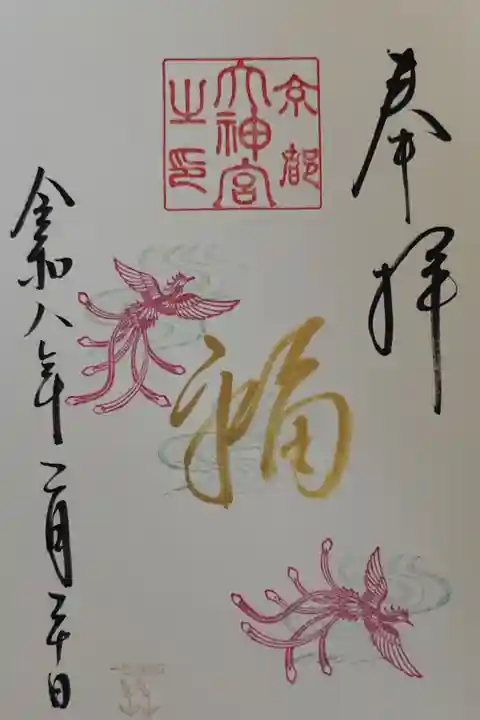 奉拝
京都
大神宮
之印
福
令和八年二月二十日